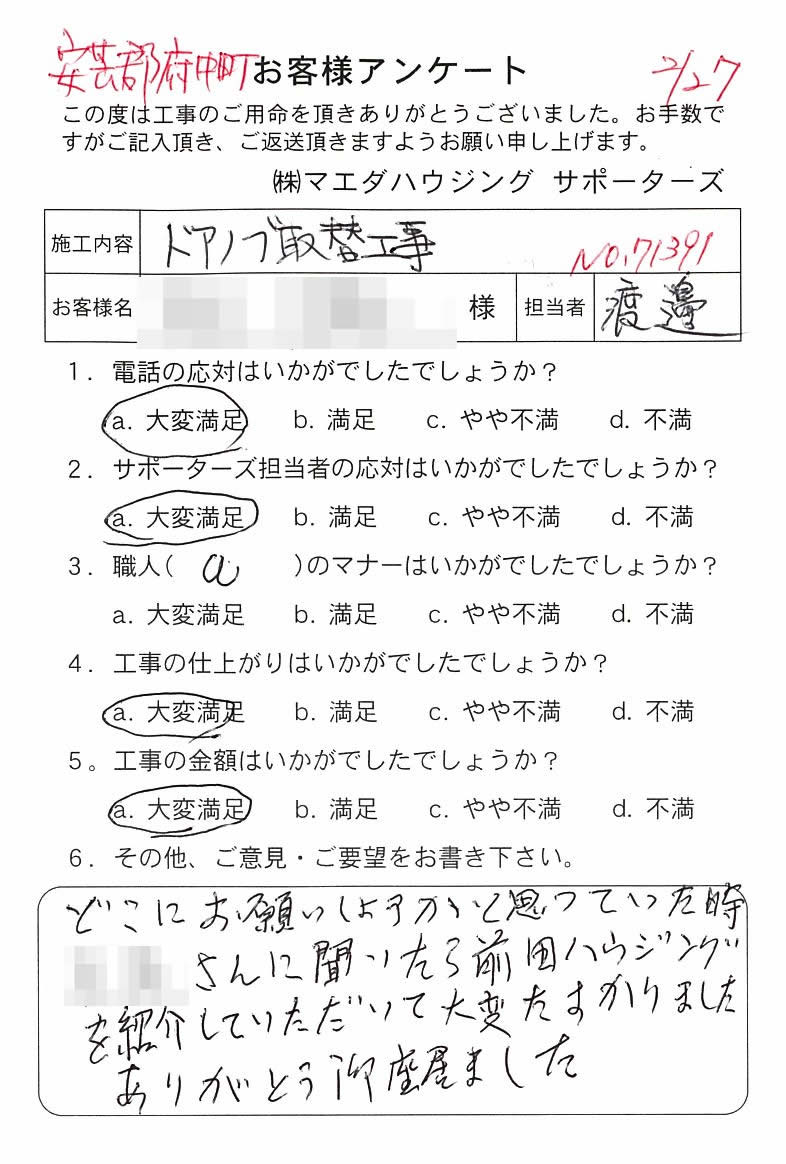 安芸郡府中町 お客様アンケート 2/27
この度は工事のご用命を頂きありがとうございました。お手数で
すがご記入頂き、ご返送頂きますようお願い申し上げます。
㈱マエダハウジング サポーターズ
施工内容 ドアノブ取替工事 NO.71391
お客様名 様 担当者 渡邉
1. 電話の応対はいかがでしたでしょうか?
a. 大変満足 b. 満足 c. やや不満 d. 不満
2. サポーターズ担当者の応対はいかがでしたでしょうか?
a. 大変満足 b. 満足 c. やや不満 d. 不満
3. 職人( a )のマナーはいかがでしたでしょうか?
a. 大変満足 b. 満足 c. やや不満 d. 不満
4. 工事の仕上がりはいかがでしたでしょうか?
a. 大変満足 b. 満足 c. やや不満 d. 不満
5。工事の金額はいかがでしたでしょうか?
a. 大変満足 b. 満足 c. やや不満 d. 不満
6. その他、ご意見・ご要望をお書き下さい。
どこにお願いしようかと思っていた時
さんに聞いたら前田ハウジング
を紹介していただいて大変たすかりました
ありがとう御座居ました